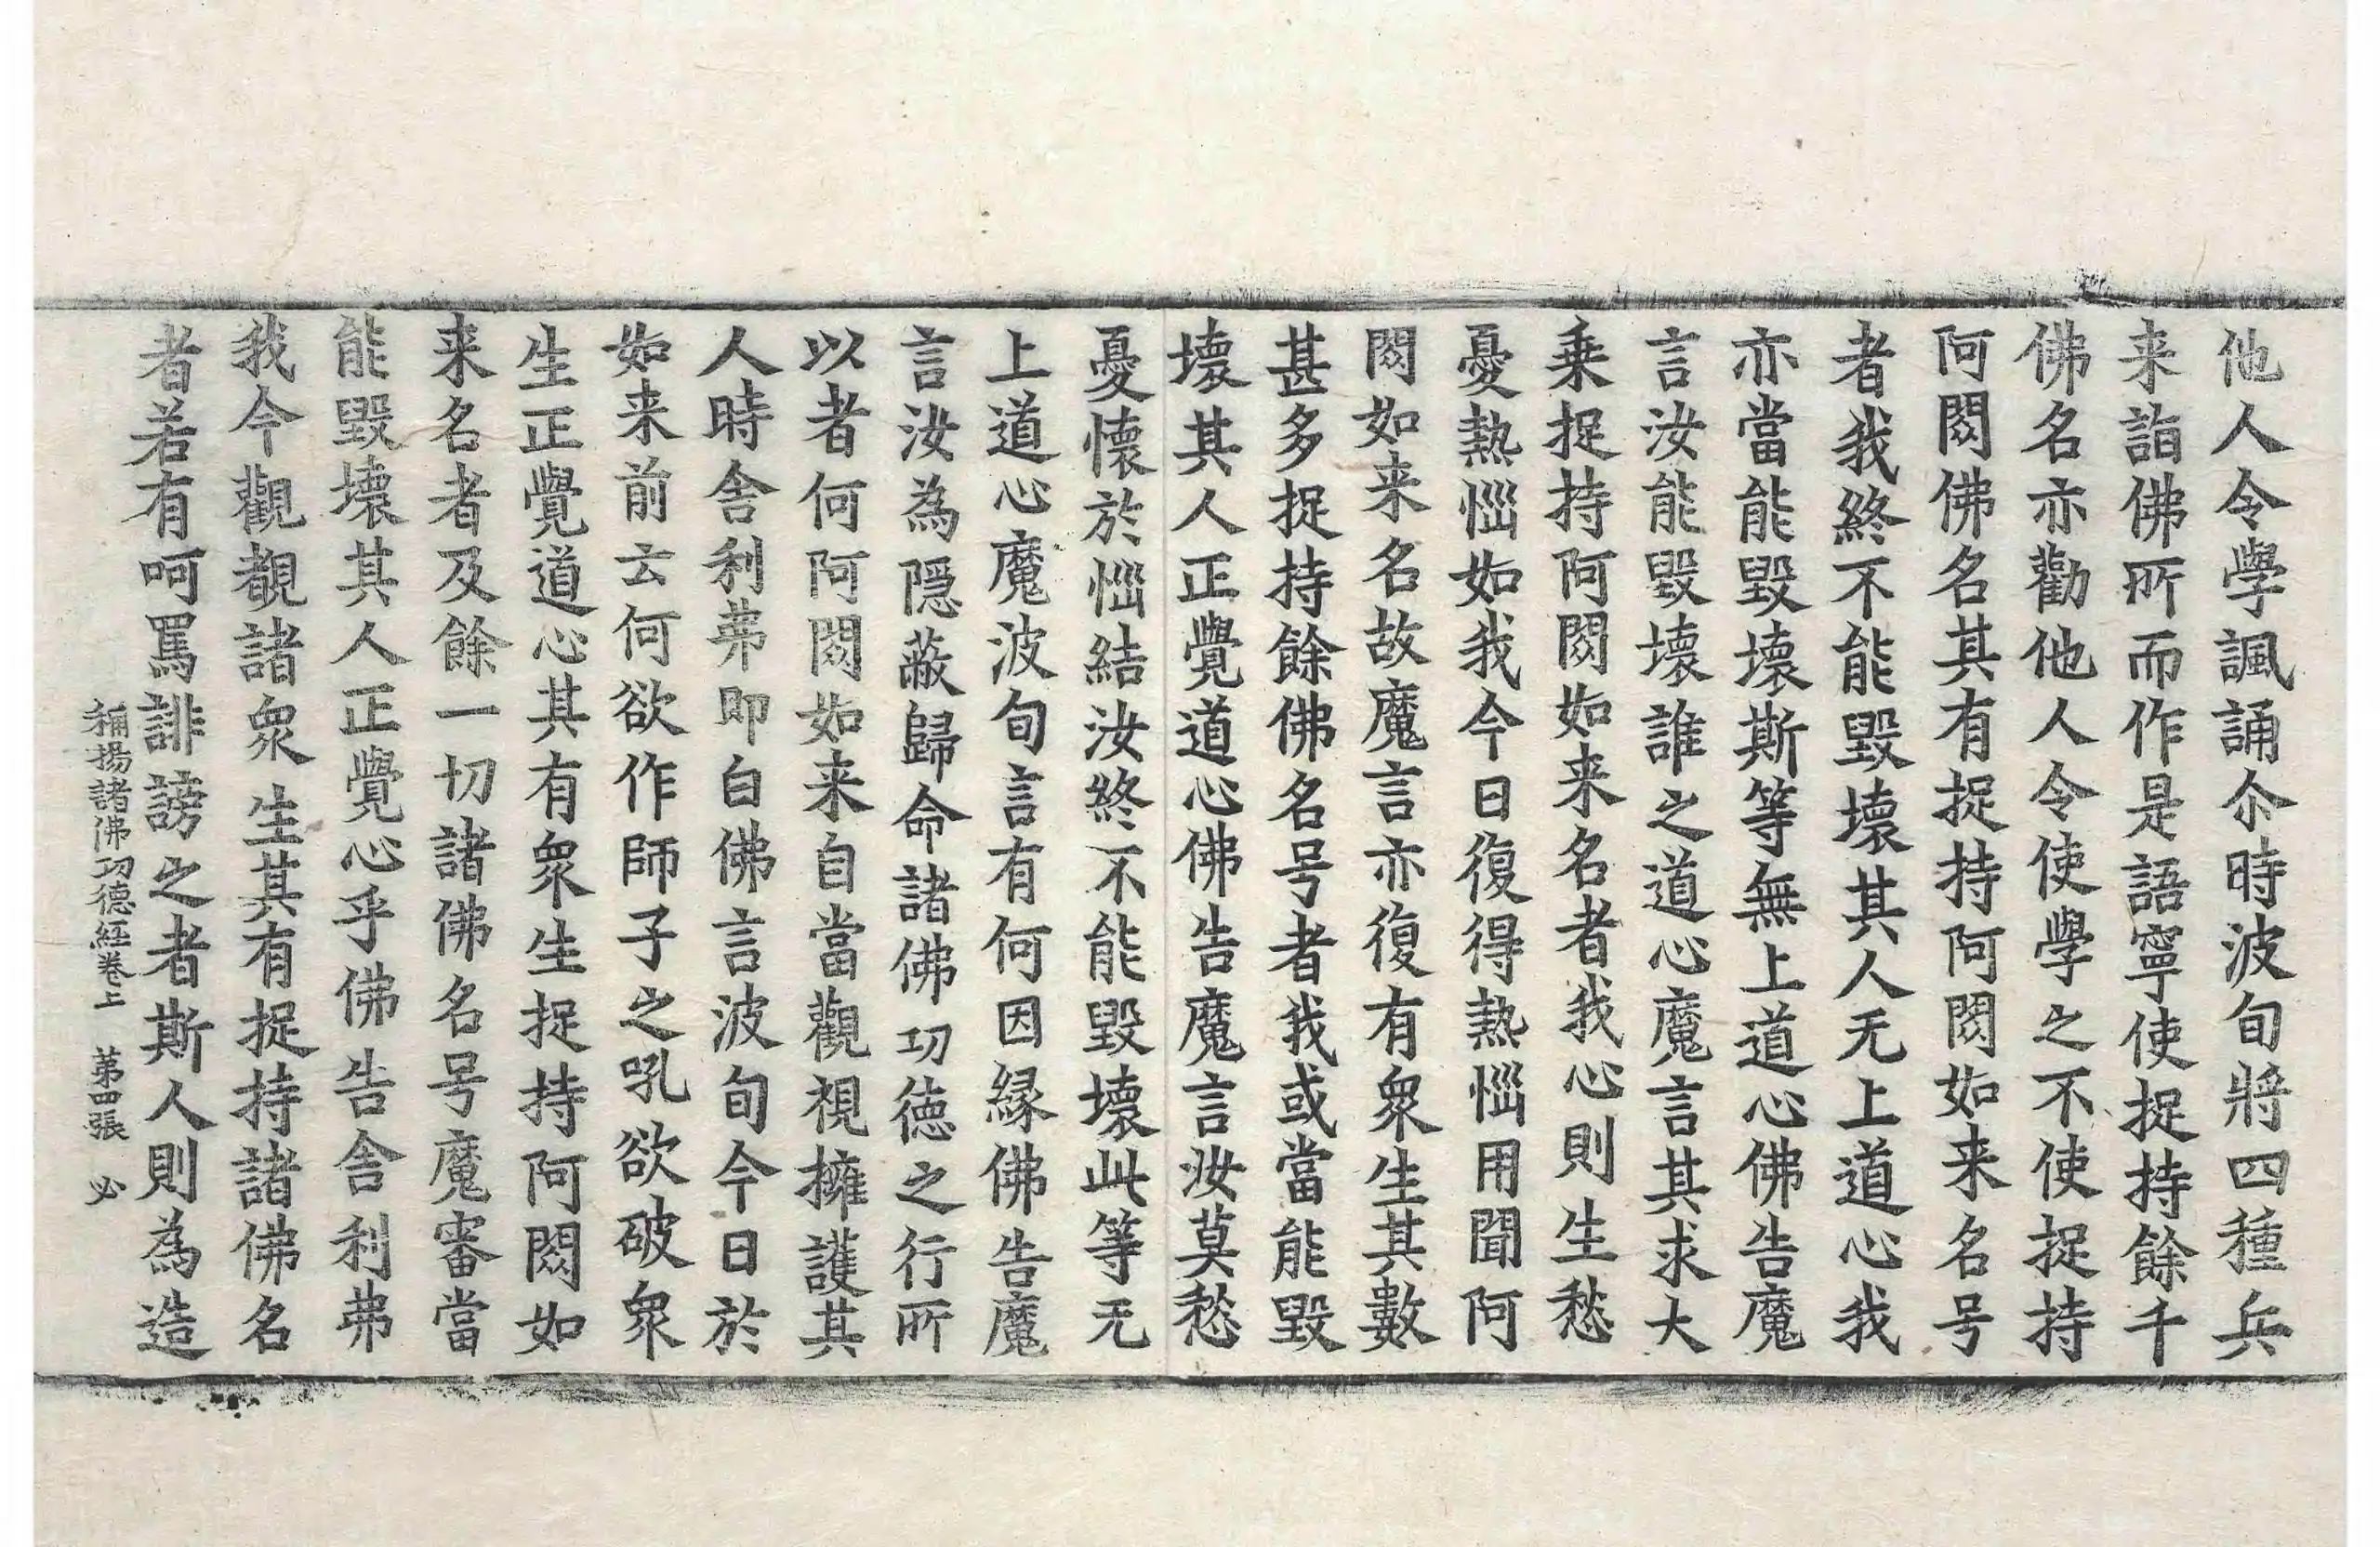 他人令學諷誦尒時波旬將四種兵
来詣佛所而作是語寧使捉持餘千
佛名亦勸他人令使學之不使捉持
阿閦佛名其有捉持阿閦如来名号
者我終不能毀壞其人无上道心我
亦當能毀壞斯等無上道心佛告魔
言汝能毀壞誰之道心魔言其求大
乗捉持阿閦如来名者我心則生愁
憂熱惱如我今日復得熱惱用聞阿
閦如来名故魔言亦復有衆生其數
甚多捉持餘佛名号者我或當能毀
壞其人正覺道心佛告魔言汝莫愁
憂懷於惱結汝終不能毀壞此等无
上道心魔波旬言有何因緣佛告魔
言汝為隱蔽歸命諸佛功德之行所
以者何阿閦如来自當觀視擁護其
人時舍利弗即白佛言波旬今日於
如来前云何欲作師子之吼欲破衆
生正覺道心其有衆生捉持阿閦如
来名者及餘一切諸佛名号魔審當
能毀壞其人正覺心乎佛告舍利弗
我今觀覩諸衆生其有捉持諸佛名
者若有呵罵誹謗之者斯人則為造
稱揚諸佛功德經卷上 第四張 必